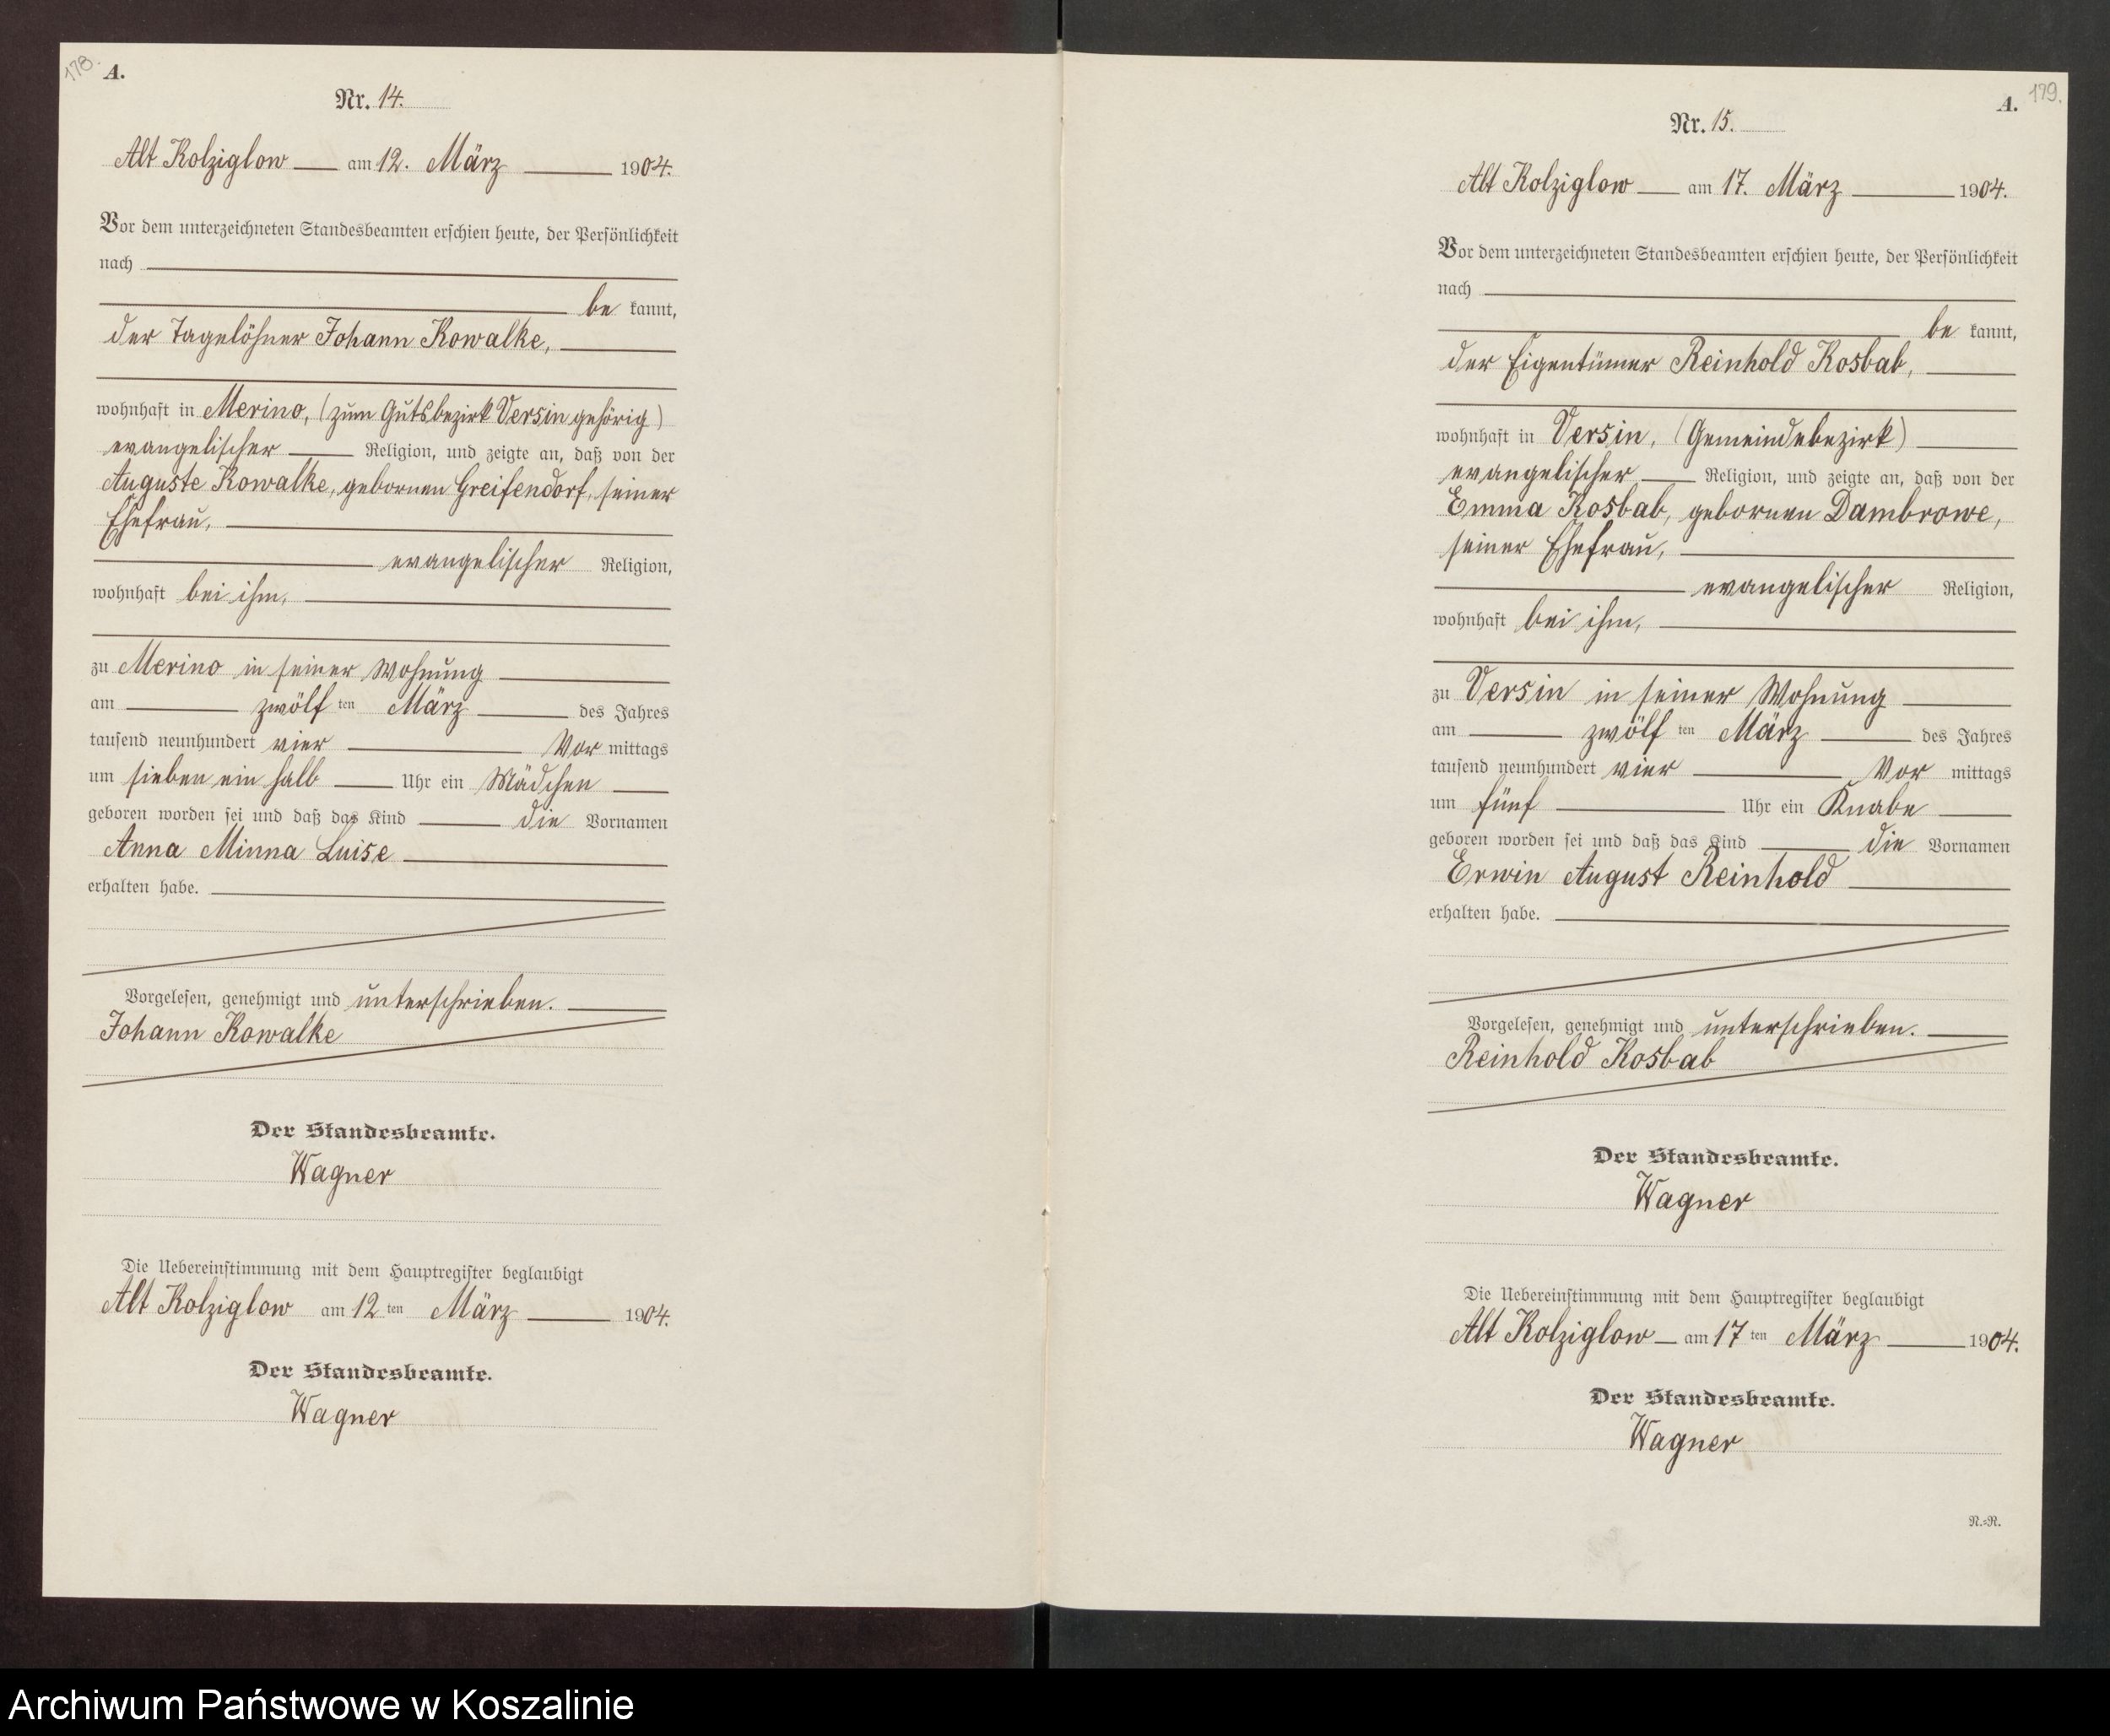 178.
A.
Nr. 14.
Alt Kolziglow am 12. März 1904.
Vor dem unterzeichneten Standesbeamten erschien heute, der Persönlichkeit
nach
be kannt,
der Tagelöhner Johann Kowalke,
wohnhaft in Merino, (zum Gutsbezirk Versin gehörig)
evangelischer Religion, und zeigte an, daß von der
Auguste Kowalke, gebornen Greifendorf, seiner
Ehefrau,
evangelischer Religion,
wohnhaft bei ihm,
zu Merino in seiner Wohnung
am zwölf ten März des Jahres
tausend neunhundert vier Vor mittags
um sieben ein halb Uhr ein Mädchen
geboren worden sei und daß das Kind die Vornamen
Anna Minna Luise
erhalten habe.
Vorgelesen, genehmigt und unterschrieben.
Johann Kowalke
Der Standesbeamte.
Wagner
Die Uebereinstimmung mit dem Hauptregister beglaubigt
Alt Kolziglow am 12 ten März 1904.
Der Standesbeamte.
Wagner
179.
A.
Nr. 15.
Alt Kolziglow am 17. März 1904.
Vor dem unterzeichneten Standesbeamten erschien heute, der Persönlichkeit
nach
be kannt,
der Eigentümer Reinhold Kosbab,
wohnhaft in Versin, (Gemeindebezirk)
evangelischer Religion, und zeigte an, daß von der
Emma Kosbab, gebornen Dambrowe,
seiner Ehefrau,
evangelischer Religion,
wohnhaft bei ihm,
zu Versin in seiner Wohnung
am zwölf ten März des Jahres
tausend neunhundert vier Vor mittags
um fünf Uhr ein Knabe
geboren worden sei und daß das Kind die Vornamen
Erwin August Reinhold
erhalten habe.
Vorgelesen, genehmigt und unterschrieben.
Reinhold Kosbab
Der Standesbeamte.
Wagner
Die Uebereinstimmung mit dem Hauptregister beglaubigt
Alt Kolziglow am 17 ten März 1904.
Der Standesbeamte.
Wagner
N.=R.
Archiwum Państwowe w Koszalinie